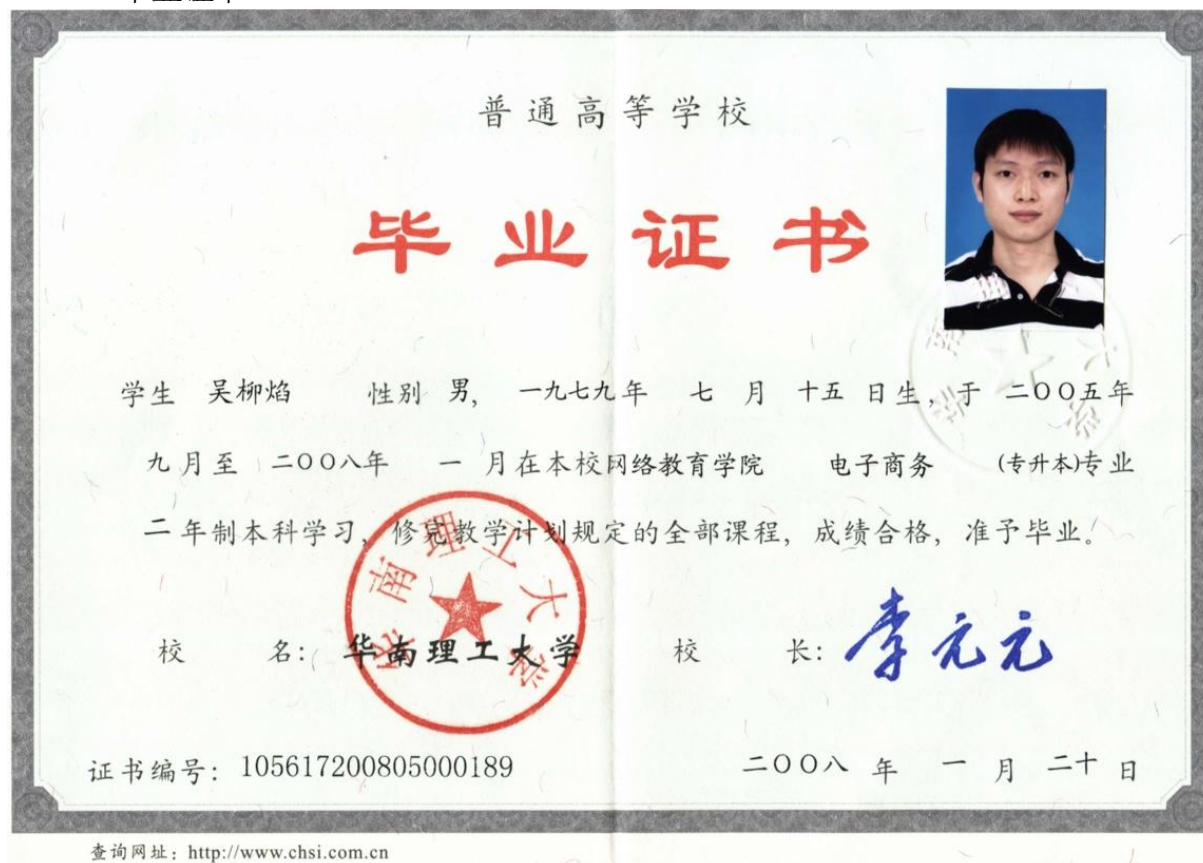 普通高等学校
毕业证书
学生 吴柳焰 性别 男, 一九七九年 七 月 十五 日生,于 二〇〇五年
九月至 二〇〇八年 一 月在本校网络教育学院 电子商务 (专升本)专业
二年制本科学习,修完教学计划规定的全部课程,成绩合格,准予毕业。
华南理工大学
校 名: 华南理工大学 校 长: 李元元
证书编号: 105617200805000189 二〇〇八 年 一 月 二十 日
查询网址:http://www.chsi.com.cn